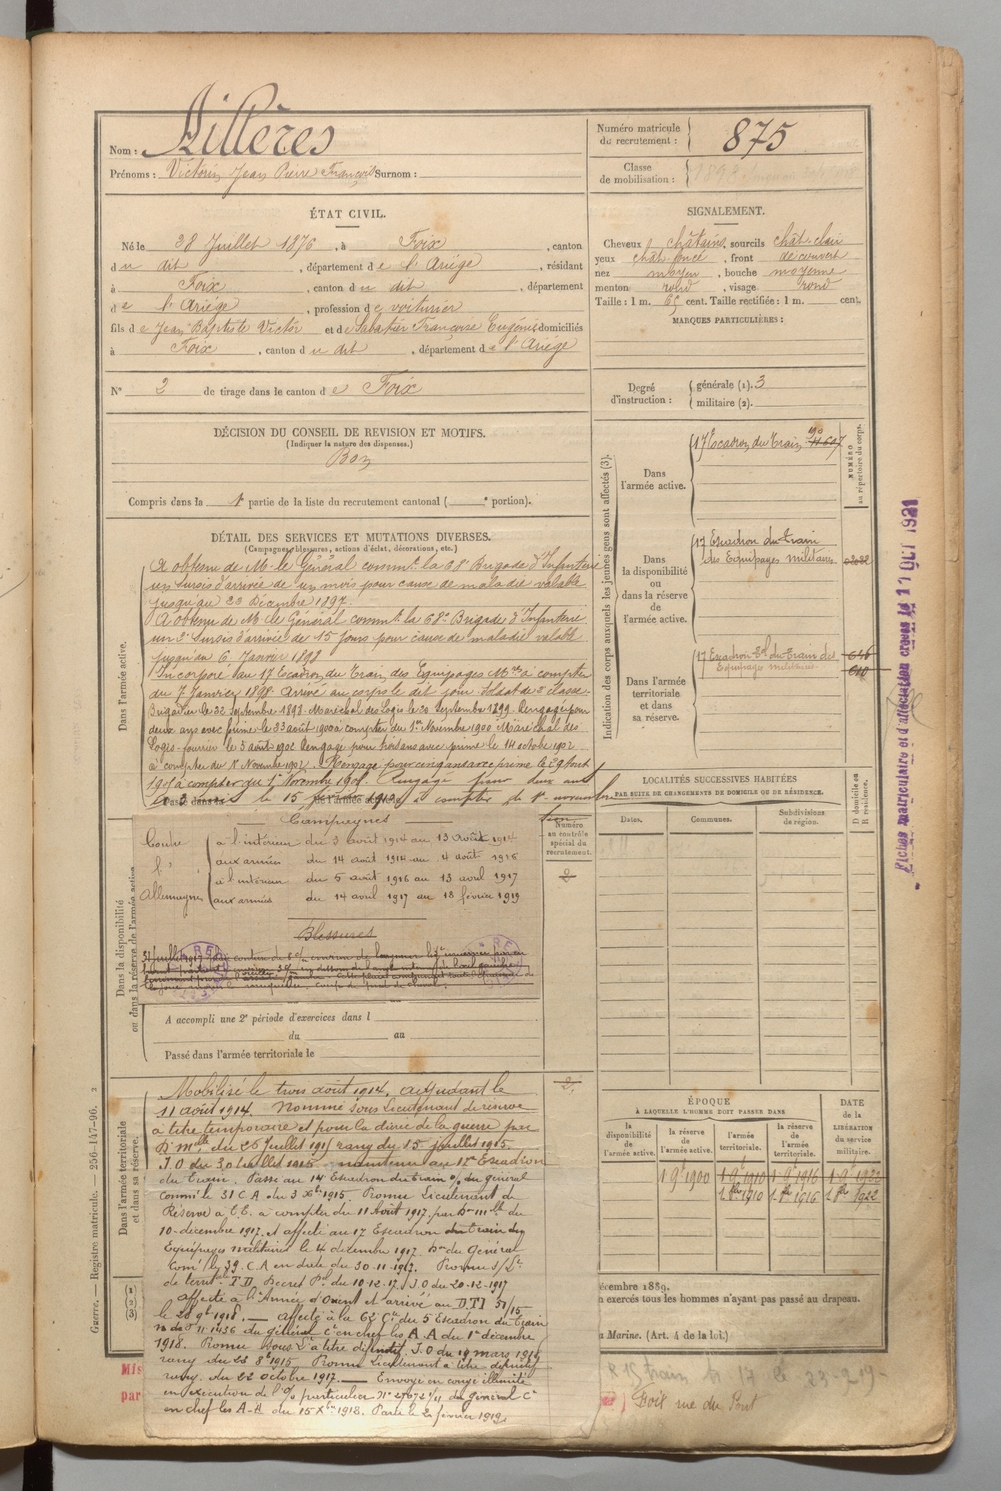 Nom : Aillères
Prénoms : Victorin Jean Pierre François Surnom :
Numéro matricule du recrutement : 875
Classe de mobilisation : 1898
ÉTAT CIVIL.
Né le 28 Juillet 1876, à Foix, canton
du dit, département de l'Ariége, résidant
à Foix, canton du dit, département
de l'Ariége, profession de voiturier
fils de Jean Baptiste Victor et de Sabatier Françoise Eugénie domiciliés
à Foix, canton du dit, département de l'Ariége
N° 2 de tirage dans le canton de Foix
SIGNALEMENT.
Cheveux châtains, sourcils chât. clair
yeux chât. foncé, front découvert
nez moyen, bouche moyenne
menton rond, visage rond
Taille : 1 m. 65 cent. Taille rectifiée : 1 m. cent.
MARQUES PARTICULIÈRES :
Degré d'instruction : générale (1). 3
militaire (2).
DÉCISION DU CONSEIL DE REVISION ET MOTIFS.
(Indiquer la nature des dispenses.)
Bon
Compris dans la 1e partie de la liste du recrutement cantonal ( e portion).
DÉTAIL DES SERVICES ET MUTATIONS DIVERSES.
(Campagnes, blessures, actions d'éclat, décorations, etc.)
Dans l'armée active.
A obtenu de M. le Général commt la 68e Brigade d'Infanterie
un sursis d'arrivée de un mois pour cause de maladie valable
jusqu'au 23 Décembre 1897.
A obtenu de M. le Général commt la 68e Brigade d'Infanterie
un 2e sursis d'arrivée de 15 jours pour cause de maladie valable
jusqu'au 6 Janvier 1898
Incorporé au 17 Escadron du Train des Equipages Mres à compter
du 7 Janvier 1898. Arrivé au corps le dit jour. Soldat de 2e classe.
Brigadier le 22 Septembre 1898. Maréchal des Logis le 20 Septembre 1899. Rengagé pour
deux ans avec prime le 23 août 1900 à compter du 1er Novembre 1900 Maréchal des
Logis-fourrier le 3 août 1902 Rengagé pour trois ans avec prime le 14 octobre 1902
à compter du 1er Novembre 1902. Rengagé pour cinq ans avec prime le 29 Août
1905 à compter du 1er Novembre 1905. Rengagé pour deux ans
le 15 à compter du 1er novembre
Campagnes
Contre l'Allemagne
à l'intérieur du 3 août 1914 au 13 août 1914
aux armées du 14 août 1914 au 4 août 1916
à l'intérieur du 5 août 1916 au 13 avril 1917
aux armées du 14 avril 1917 au 18 février 1919
Blessures
Numéro au contrôle spécial du recrutement.
2
Dans la disponibilité ou dans la réserve de l'armée active
A accompli une 2e période d'exercices dans l
du au
Passé dans l'armée territoriale le
Dans l'armée territoriale et dans sa réserve.
2
Mobilisé le trois août 1914, adjudant le
11 août 1914. Nommé sous Lieutenant de réserve
à titre temporaire et pour la durée de la guerre par
Dn mlle du 26 Juillet 1915 rang du 15 juillet 1915.
J.O du 30 Juillet 1915 maintenu au 17e Escadron
du Train. Passé au 14 Escadron du Train o/ du général
Commt le 31 C.A. du 3 Xbre 1915. Promu Lieutenant de
Réserve à T.T. à compter du 11 Août 1917 par Dn mlle du
10 décembre 1917 et affecté au 17 Escadron du train des
Equipages militaires le 4 décembre 1917. Dn du Général
Comt le 39 C.A en date du 30-11-1917. Promu s/Lt
de territle T.D. Decret Pel du 10-12-17. J.O du 20-12-1917
affecté à l'Armée d'Orient et arrivé au D.T.I
le 28 9bre 1918. — affecté à la 62 Cie du 5 Escadron du Train
n de S 11.1436 du général Ct en chef les A A du 1er décembre
1918. Promu Sous Lt à titre définitif J.O du 19 mars 1919
rang du 22 8bre 1915. Promu Lieutenant à titre définitif
rang du 22 octobre 1917. — Envoyé en congé illimité
en exécution de l'o/ particulier N° du général Ct
en chef les A.A du 15 Xbre 1918. Parti le 2 février 1919
Indication des corps auxquels les jeunes gens sont affectés (3).
NUMÉRO au répertoire du corps.
Dans l'armée active.
17e Escadron du Train
Dans la disponibilité ou dans la réserve de l'armée active.
17 Escadron du train
des Equipages militaires
Dans l'armée territoriale et dans sa réserve.
17 Escadron Tal du Train des
Equipages militaires
646
610
LOCALITÉS SUCCESSIVES HABITÉES
PAR SUITE DE CHANGEMENTS DE DOMICILE OU DE RÉSIDENCE.
D domicile ou R résidence.
Dates. Communes. Subdivisions de région.
ÉPOQUE
À LAQUELLE L'HOMME DOIT PASSER DANS
la disponibilité de l'armée active.
la réserve de l'armée active.
l'armée territoriale.
la réserve de l'armée territoriale.
DATE de la LIBÉRATION du service militaire.
1 9bre 1900 1 9bre 1910 1 9bre 1916 1 9bre 1922
1 Xbre 1910 1 Xbre 1916 1 Xbre 1922
écembre 1889.
n exercés tous les hommes n'ayant pas passé au drapeau.
u Marine. (Art. 4 de la loi.)
Foix rue du Pont
Guerre. — Registre matricule. — 256-147-96.
Fiches matriculaire et d'affectation créées le 17 OCT 1921